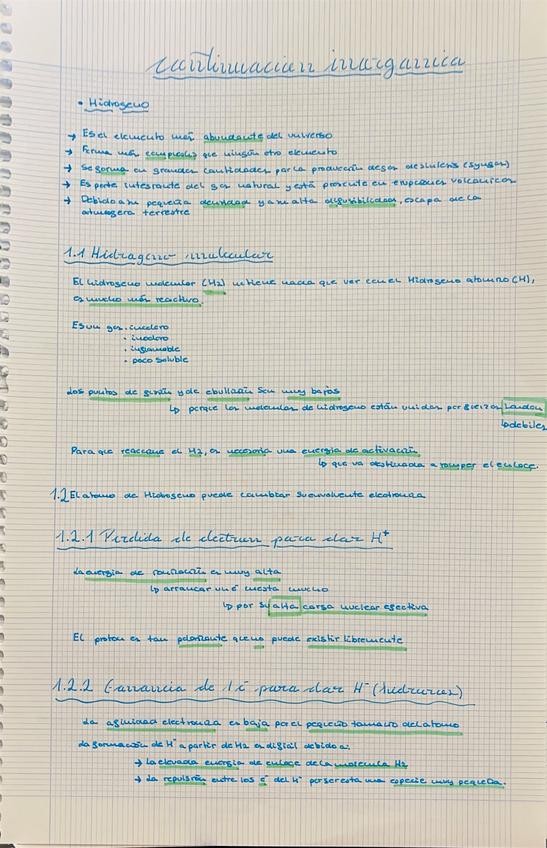 continuacion inorganica
• Hidrogeno
→ Es el elemento mas abundante del universo
→ Forma mas compuestos que ningun otro elemento
→ Se forma en grandes cantidades por la produccion de gas de sintesis (syngas)
→ Es parte integrante del gas natural y está presente en erupciones volcanicas
→ Debido a su pequeña densidad y a su alta difusibilidad, escapa de la
atmosfera terrestre
1.1 Hidrogeno molecular
El hidrogeno molecular (H2) no tiene nada que ver con el Hidrogeno atomico (H),
es mucho más reactivo.
Es un gas · incoloro
• inodoro
• inflamable
• poco soluble
Los puntos de fusión y de ebullición son muy bajos
↳ porque las moleculas de hidrogeno están unidas por fuerzas London
↳ debiles
Para que reaccione el H2, es necesaria una energia de activación
↳ que va destinada a romper el enlace.
1.2 El atomo de Hidrogeno puede cambiar su envolvente electronica
1.2.1 Perdida de electron para dar H⁺
La energia de ionización es muy alta
↳ arrancar un é cuesta mucho
↳ por su alta carga nuclear efectiva
El proton es tan polarizante que no puede existir libremente
1.2.2 Ganancia de 1 é para dar H⁻ (hidruros)
La afinidad electronica es baja por el pequeño tamaño del atomo
La formación de H⁻ a partir de H2 es dificil debido a:
→ La elevada energia de enlace de la molecula H2
→ La repulsión entre los é del H⁻ por ser esta una especie muy pequeña.